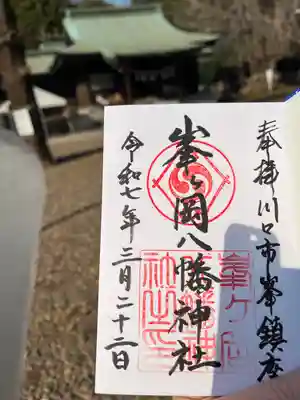 奉拝川口市峯鎮座
峯ヶ岡八幡神社
令和七年三月二十二日